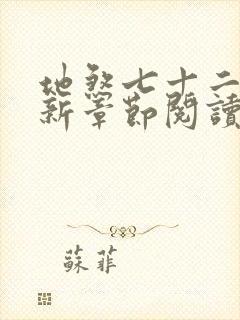 地煞七十二
新章節閱讀
蘇菲